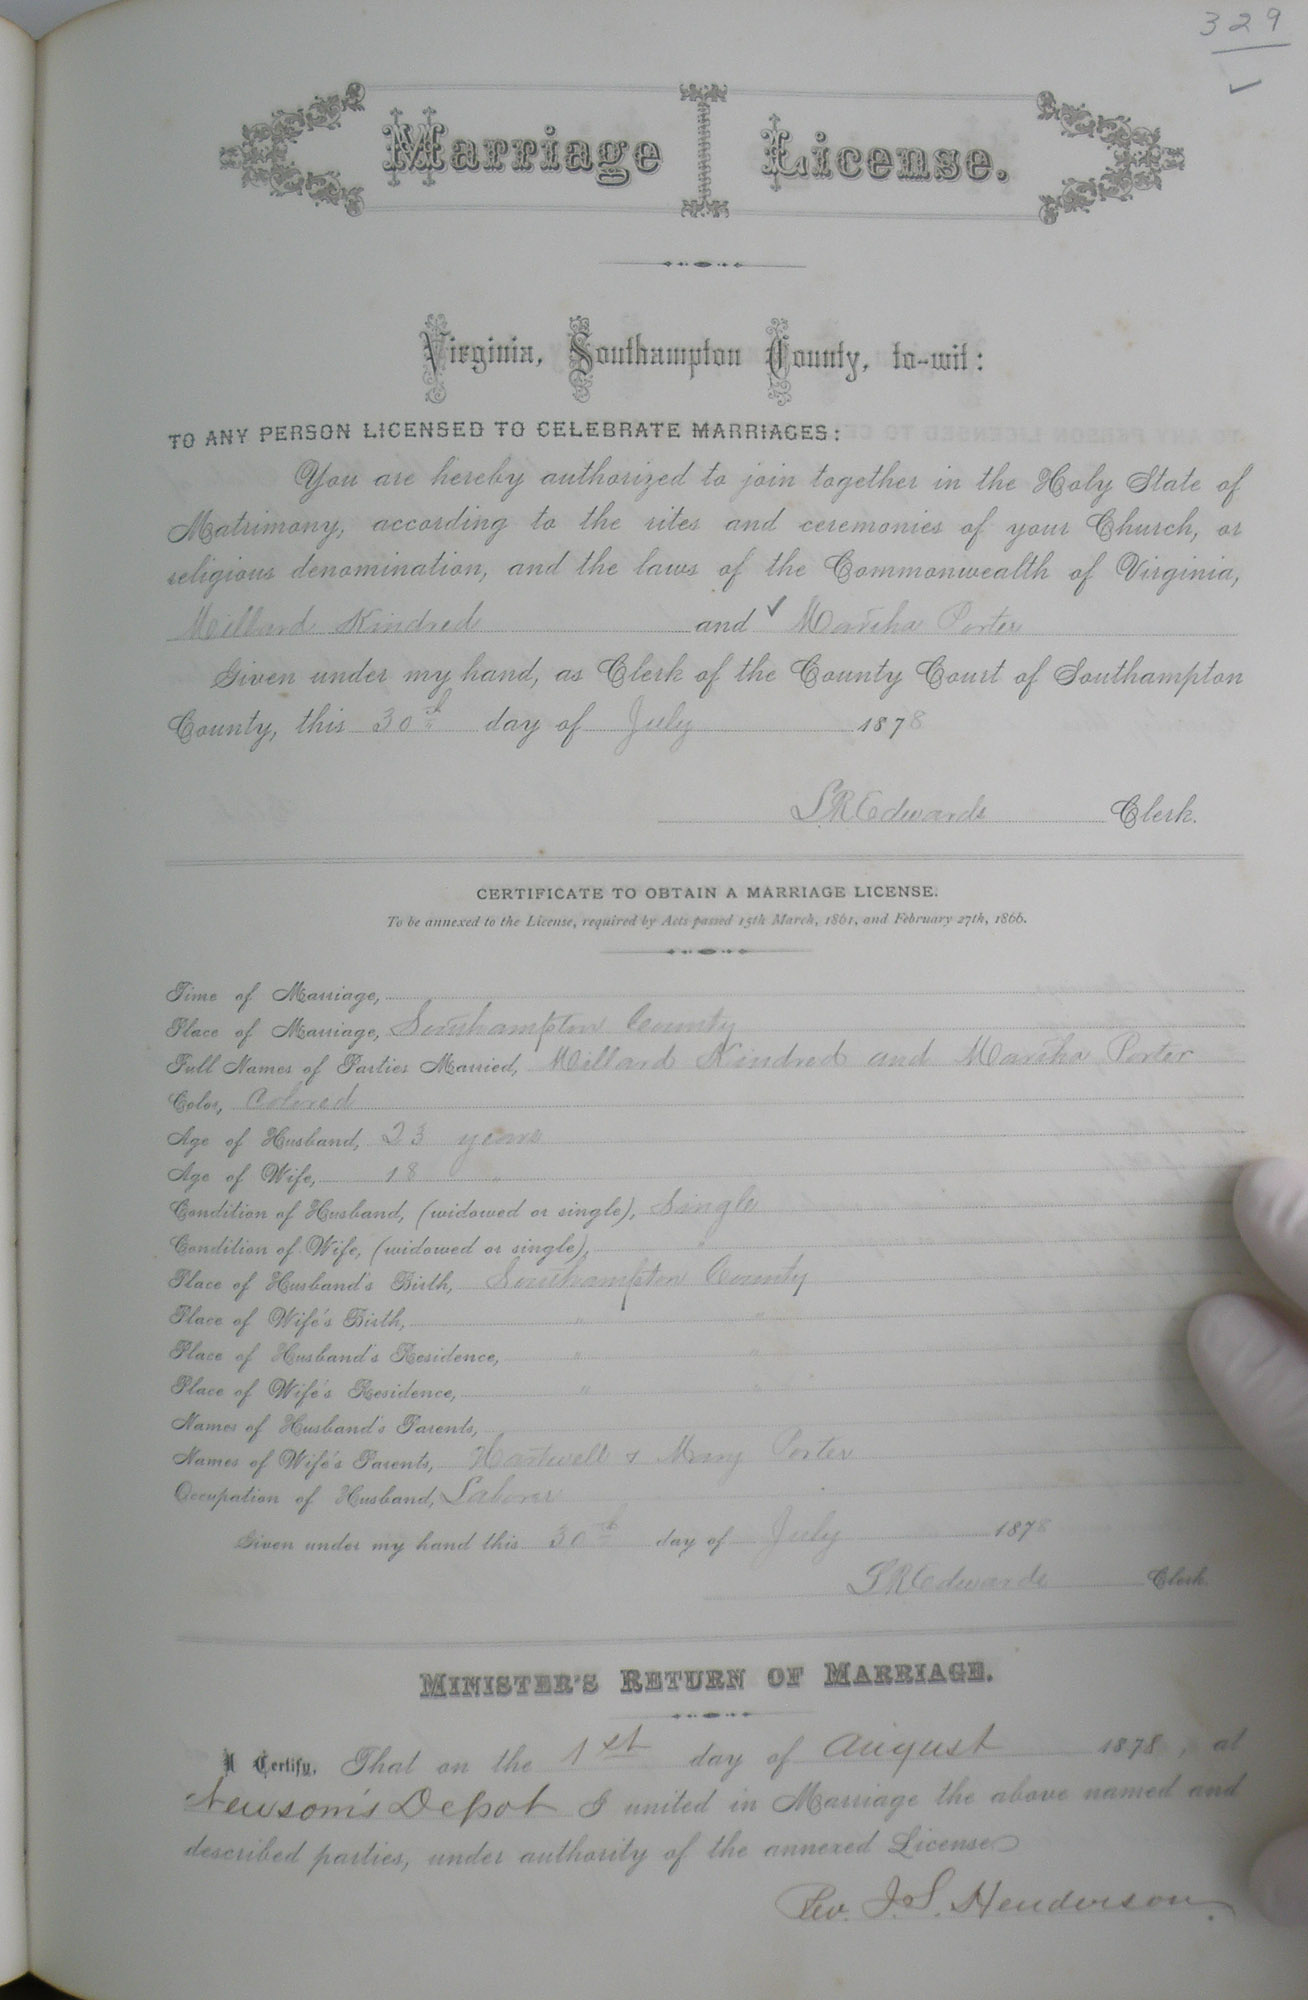 329
Marriage License.
Virginia, Southampton County, to-wit:
TO ANY PERSON LICENSED TO CELEBRATE MARRIAGES:
You are hereby authorized to join together in the Holy State of
Matrimony, according to the rites and ceremonies of your Church, or
religious denomination, and the laws of the Commonwealth of Virginia,
Millard Kindred and ✓ Martha Porter
Given under my hand, as Clerk of the County Court of Southampton
County, this 30th day of July 1878
L R Edwards Clerk.
CERTIFICATE TO OBTAIN A MARRIAGE LICENSE.
To be annexed to the License, required by Acts passed 15th March, 1861, and February 27th, 1866.
Time of Marriage,
Place of Marriage, Southampton County
Full Names of Parties Married, Millard Kindred and Martha Porter
Color, Colored
Age of Husband, 23 years
Age of Wife, 18 "
Condition of Husband, (widowed or single), Single
Condition of Wife, (widowed or single), "
Place of Husband's Birth, Southampton County
Place of Wife's Birth, " "
Place of Husband's Residence, " "
Place of Wife's Residence, " "
Names of Husband's Parents,
Names of Wife's Parents, Hartwell & Mary Porter
Occupation of Husband, Laborer
Given under my hand this 30th day of July 1878
L R Edwards Clerk.
MINISTER'S RETURN OF MARRIAGE.
I Certify, That on the 1st day of August 1878, at
Newsom's Depot I united in Marriage the above named and
described parties, under authority of the annexed License
Rev. J. S. Henderson.